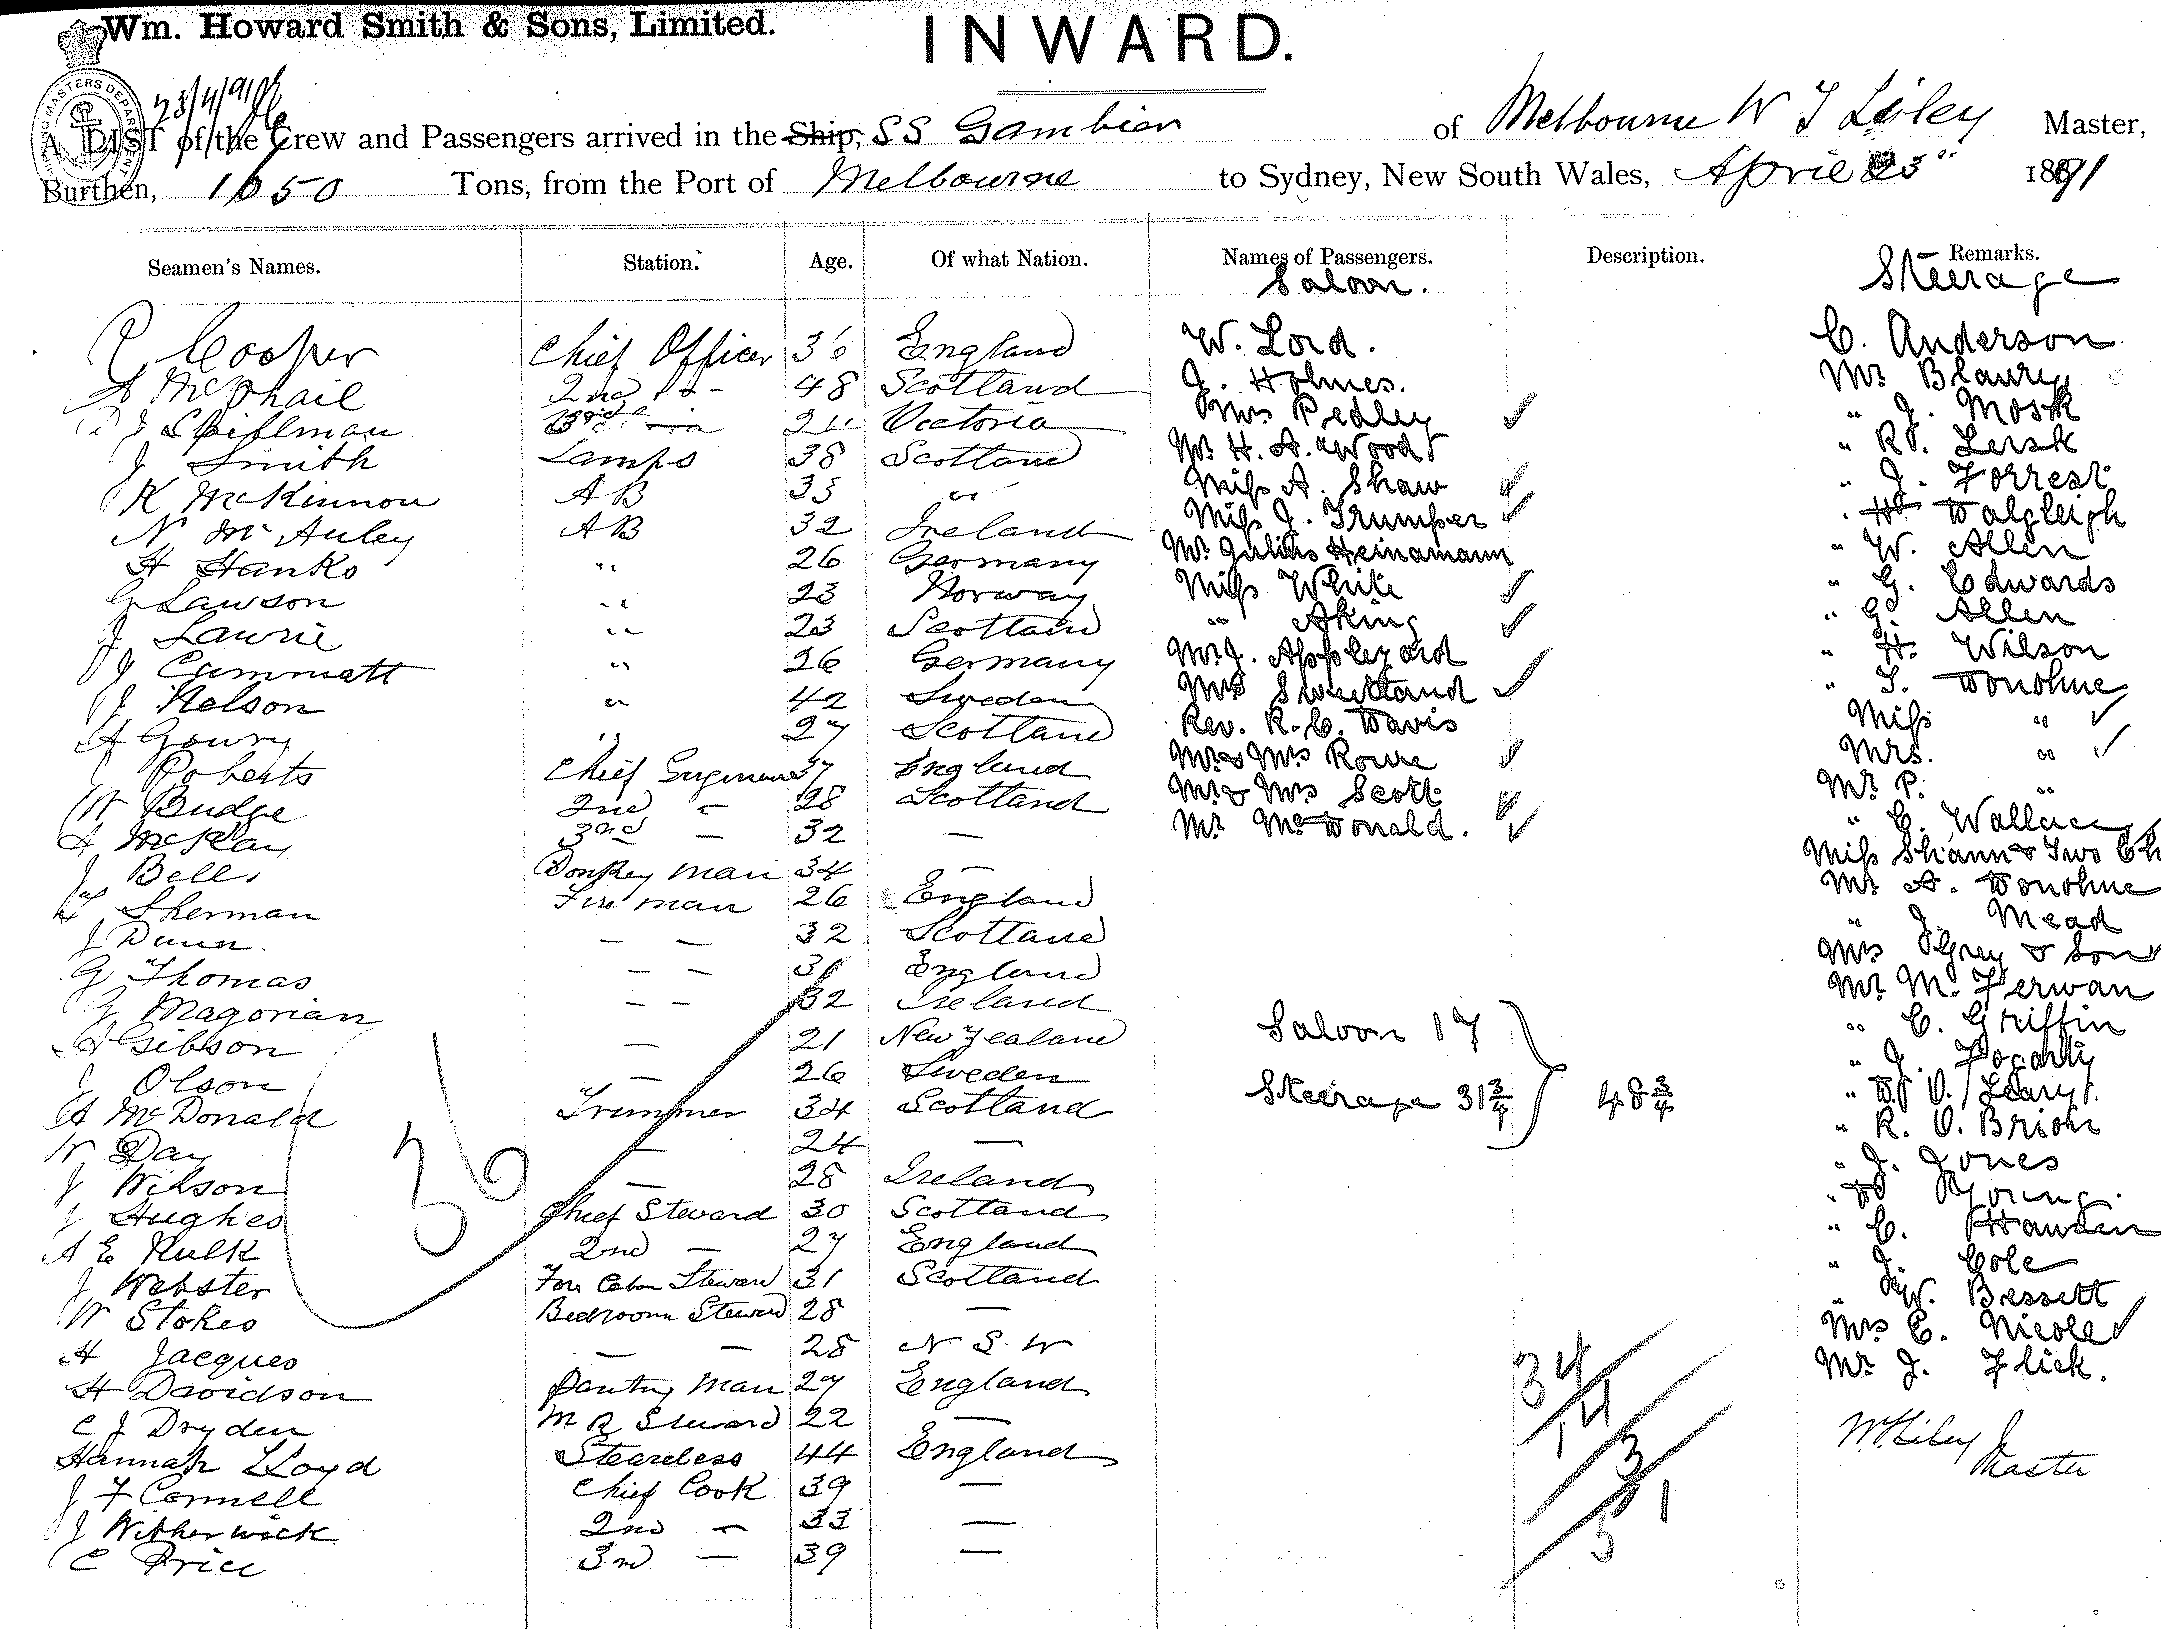 Wm. Howard Smith & Sons, Limited.
INWARD.
23/4/91
A LIST of the Crew and Passengers arrived in the Ship, SS Gambier of Melbourne W J Liley Master,
Burthen, 1650 Tons, from the Port of Melbourne to Sydney, New South Wales, April 23" 1891
Seamen's Names. Station. Age. Of what Nation. Names of Passengers. Description. Remarks.
Saloon. Steerage
R Cooper Chief Officer 36 England
A McPhail 2nd do 48 Scotland
J Spillman 3rd Victoria
J Smith Lamps 38 Scotland
K McKinnon AB 33 "
N McAuley AB 32 Ireland
H Hanks " 26 Germany
G Lawson " 23 Norway
J Lawrie " 23 Scotland
J Cummatt " 26 Germany
J Nelson " 42 Sweden
A Gowry " 27 Scotland
Roberts Chief Engineer 37 England
W Budge 2nd - 28 Scotland
A McKay 3rd - 32 -
J Bell Donkey man 34 -
Sherman Fireman 26 England
J Dunn - - 32 Scotland
G Thomas - - 31 England
G Magorian - - 32 Ireland
A Gibson - 21 New Zealand
J Olson - 26 Sweden
A McDonald Trimmer 34 Scotland
W Day - 24 -
J Wilson - 28 Ireland
J Hughes Chief Steward 30 Scotland
A E Kulk 2nd - 27 England
J Webster Fore Cabin Steward 31 Scotland
W Stokes Bedroom Steward 28 -
H Jacques - - 28 N S W
H Davidson Pantry Man 27 England
C J Dryden M R Steward 22 -
Hannah Lloyd Stewardess 44 England
J F Connell Chief Cook 39 -
J Witherwick 2nd - 33 -
C Price 3rd - 39 -
36
W. Lord.
J. Holmes.
Mrs Pedley
Mr H. A. Wood
Miss A. Shaw
Miss J. Trumper
Mr Julius Heinamann
Miss White
" Aking
Mr J. Appleyard
Mrs Sweetland
Rev. R. C. Davis
Mr & Mrs Rowe
Mr & Mrs Scott
Mr McDonald.
Saloon 17
Steerage 31 3/4
48 3/4
34
14
3
51
C. Anderson
Mr Blaurey
" J. Mosk
" R. Lersk
" J. Forrest
" Dalgleigh
" W. Allen
" G. Edwards
" G. Allen
" H. Wilson
" T. Donohue
Miss "
Mrs. "
Mr P. "
" C. Wallace
Miss Shann & Two Ch
Mr A. Donohue
" J. Mead
Mrs Grey & Son
Mr M. Ferwan
" C. Griffin
" J. Fogarty
" D. O'Leary
" R. O. Brion
" J. Jones
" Young
" C. Hawden
" J. Cole
" W. Bessett
Mrs C. Nicole
Mr J. Flick.
W J Liley
Master